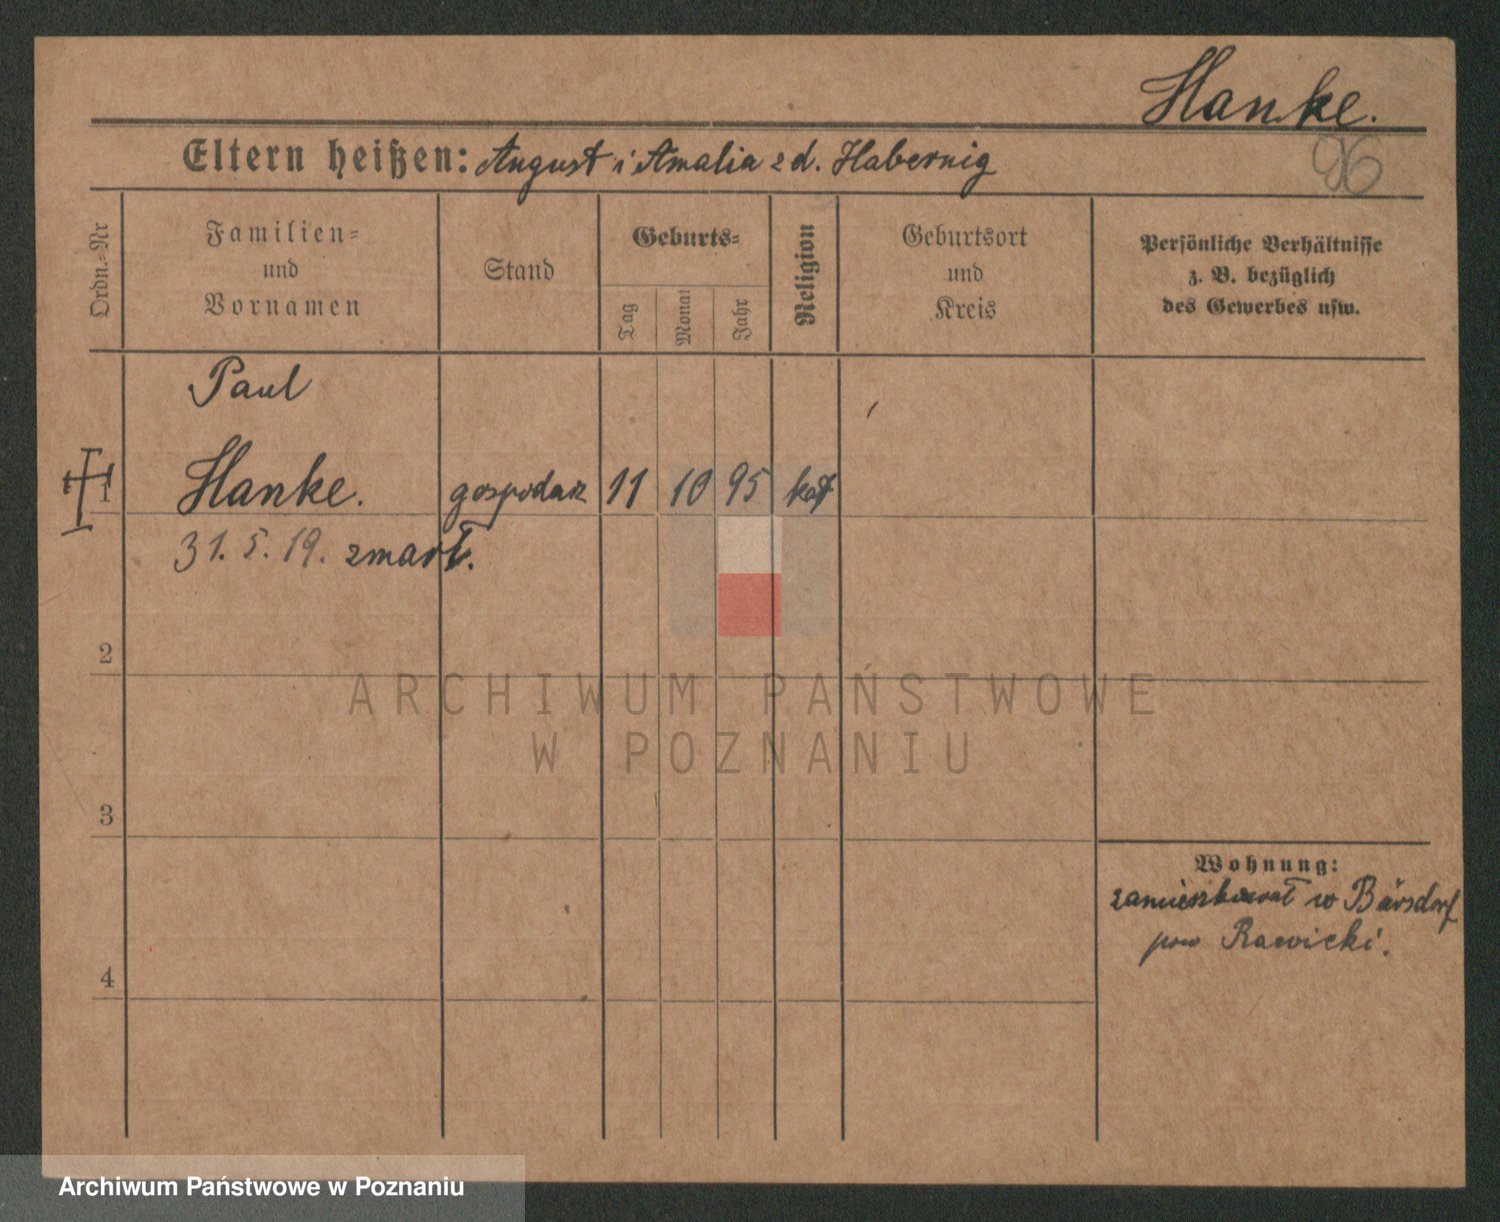 Hanke.
96
Eltern heißen: August i Amalia z d. Habernig
Ordn.-Nr
Familien-
und
Vornamen
Stand
Geburts-
Tag
Monat
Jahr
Religion
Geburtsort
und
Kreis
Persönliche Verhältnisse
z. B. bezüglich
des Gewerbes usw.
Paul
1 Hanke. gospodarz 11 10 95 kat
31. 5. 19. zmarł.
2
ARCHIWUM PAŃSTWOWE
W POZNANIU
3
Wohnung:
zamieszkował w Bärsdorf
pow Rawicki.
4
Archiwum Państwowe w Poznaniu